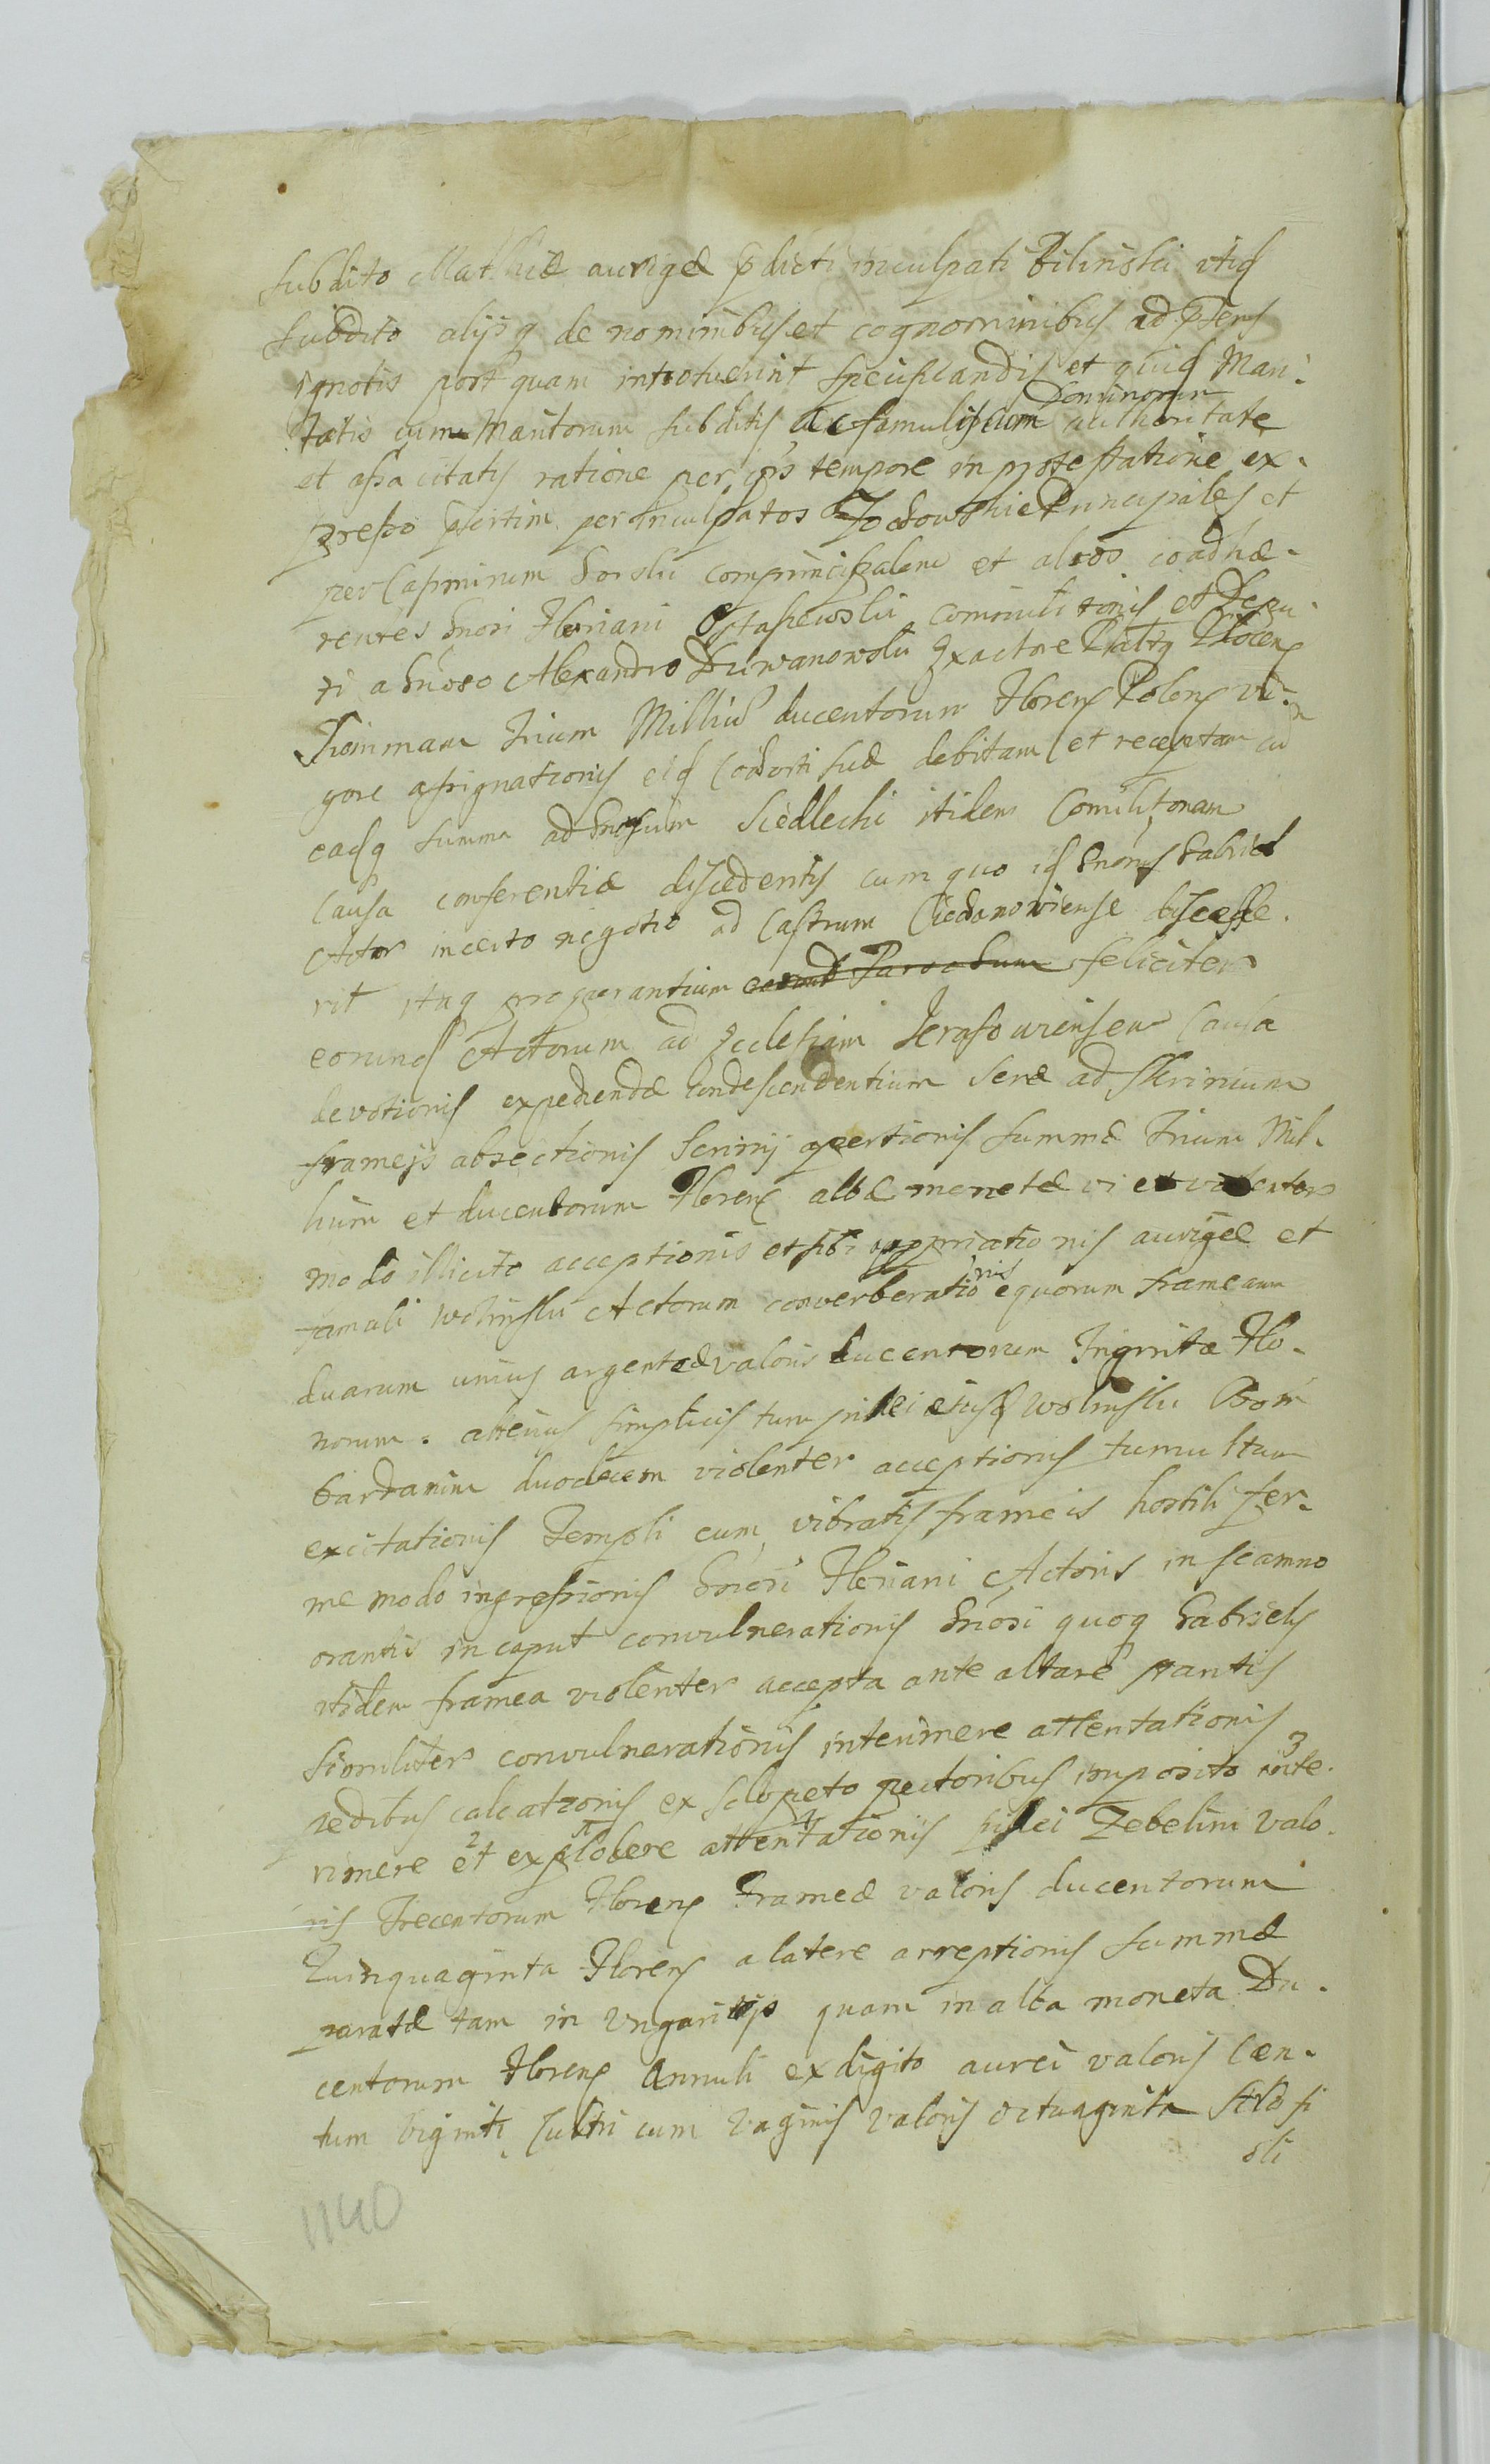 subdito Mathiæ aurigæ pdicti inculpati Bilinski itid
subdito alijsq de nominibus et cognominibus ad psens
ignotis post quam innotuerint specificandis et quid Mari-
tatis cum Maritorum subditis ac famulis cum Dominorum authoritate
et assa citatis ratione per ipsos tempore in protestatione ex-
presso psertim per inculpatos Principales et
per Casimirum Gorski comprincipalem et alios coadhæ-
rentes Gnosi Floriani Ostaszewski commilitonis et Depu-
ti a Gnoso Alexandro Exactore Pallatq Plocens
Summam Trium Millium ducentorum Florens Polons vi-
gore assignationis eid Cohorti suæ debitam et receptam cu
eadq summa ad Gnosum Siedlecki itidem Comilitonem
causa conferentiæ discedentis cum quo id Gnosus Gabriel
Actor in certo negotio ad Castrum Ciechanoviense discesse-
rit itaq properantium feliciter
eorund Actorum ad Ecclesiam causa
devotionis expediendæ condescendentium seræ ad skrinium
frameis absectionis Scrinij apertionis summæ Trium Mil-
lium et ducentorum Florens albæ monetæ vi et violenter
modo illicito acceptionis et sibi appropriationis aurigæ et
famuli Wolinski Actorum converberationis equorum framearum
duarum unius argenteæ valoris ducentorum Triginta Flo-
norum. alterius simplicis tum pilei eiusd Wolinski Bom
bardarum duodecem violenter acceptionis tumultum
excitationis Templi cum vibratis frameis hostili fer-
me modo ingressionis Gnosi Floriani Actoris in scamno
orantis in caput convulnerationis Gnosi quoq Gabrielis
itidem framea violenter accepta ante altare stantis
similiter convulnerationis interimere attentationis
pedibus calcationis ex sclopeto pectoribus imposito 3 inte-
rimere 2 et explodere attentationis pilei Zebelini valo-
ris Trecentorum Florens Frameæ valoris ducentorum
Quinquaginta Florens a latere arreptionis summæ
paratæ tam in Ungaricis quam in alba moneta Du-
centorum Florens Annuli ex digito aurei valoris Cen-
tum Viginti Cultri cum Vaginis valoris octuaginta
1140